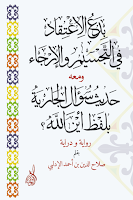 بدع الاعتقاد
في التجسيم والإرجاء
ومعه
حديث سؤال الجارية
بلفظ أين الله؟
رواية ودراية
صلاح الدين بن أحمد الإدلبي